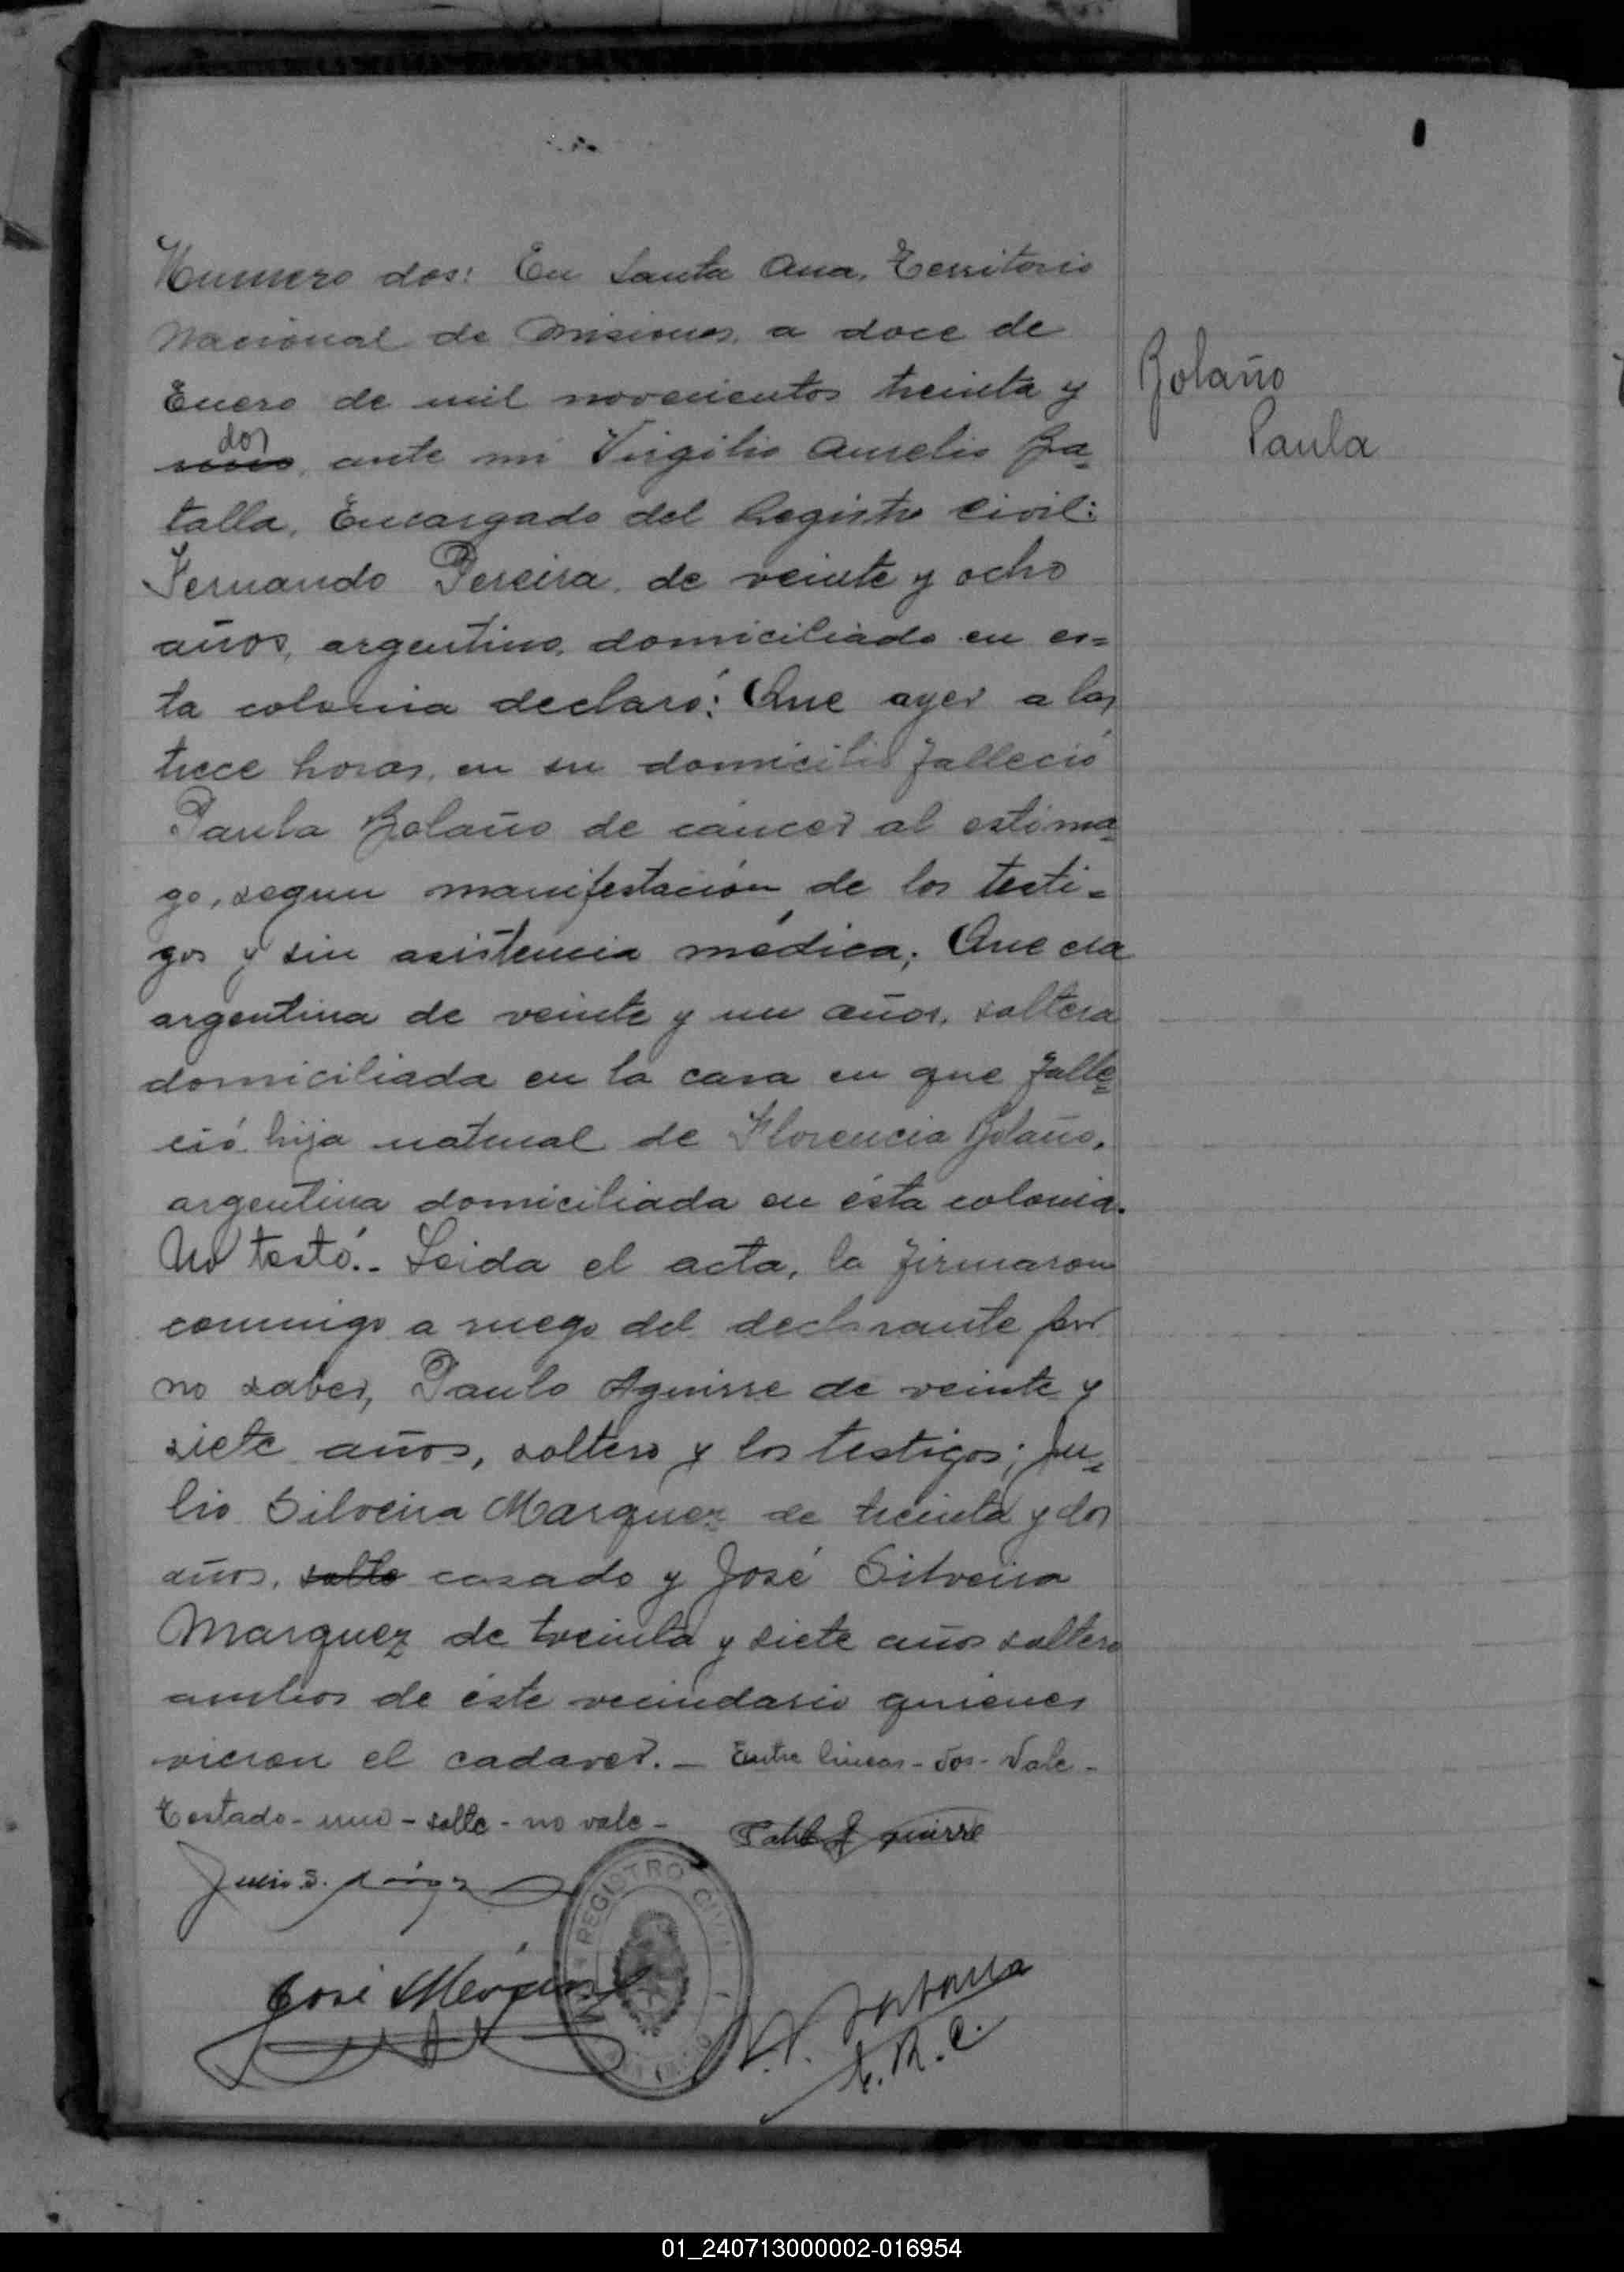 Numero dos: En Santa Ana, Territorio
Nacional de Misiones, a doce de
Enero de mil novecientos treinta y
dos
uno, ante mi Virgilio Aurelio Ba-
talla, Encargado del Registro Civil:
Fernando Pereira, de veinte y ocho
años, argentino, domiciliado en es=
ta colonia declaró: Que ayer a las
trece horas, en su domicilio falleció
Paula Bolaño de cáncer al estóma-
go, segun manifestación de los testi-
gos y sin asistencia médica; Que era
argentina de veinte y un años, soltera
domiciliada en la casa en que falle-
ció hija natural de Florencia Bolaño,
argentina domiciliada en ésta colonia.
No testó.- Leida el acta, la firmaron
conmigo a ruego del declarante por
no saber, Paulo Aguirre de veinte y
siete años, soltero y los testigos; Ju-
lio Silveira Marquez de treinta y dos
años, solte casado y José Silveira
Marquez de treinta y siete años soltero
ambos de éste vecindario quienes
vieron el cadaver.- Entre lineas-dos-Vale-
Testado-uno-solte-no vale-
Bolaño
Paula
Pablo Aguirre
Julio S.
José
REGISTRO CIVIL
V. A. Batalla
E. R. C.
01_240713000002-016954